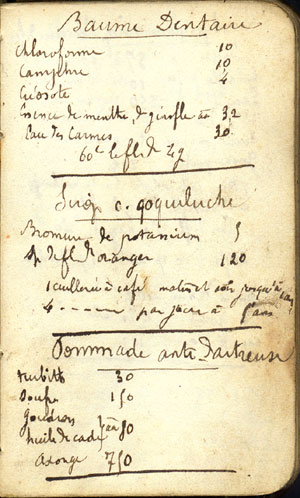 Baume Dentaire
Chloroforme 10
Camphre 10
Créosote 4
Essence de menthe, de girofle āā 3,2
Eau des Carmes 30
60c le fl. de 2g
Sirop c. coqueluche
Bromure de potassium 5
sp de fl. d'oranger 120
1 cuillerée à café matin et soir jusqu'à
4 ------ par jour à 5 ans
Pommade anti-Dartreuse
turbith 30
Soufre 150
Goudron
huile de cade } āā 80
Axonge 750